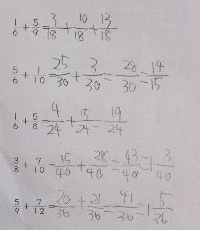 1/6 + 5/9 = 3/18 + 10/18 = 13/18
5/6 + 1/10 = 25/30 + 3/30 = 28/30 = 14/15
1/6 + 5/8 = 4/24 + 15/24 = 19/24
3/8 + 7/10 = 15/40 + 28/40 = 43/40 = 1 3/40
5/9 + 7/12 = 20/36 + 21/36 = 41/36 = 1 5/36